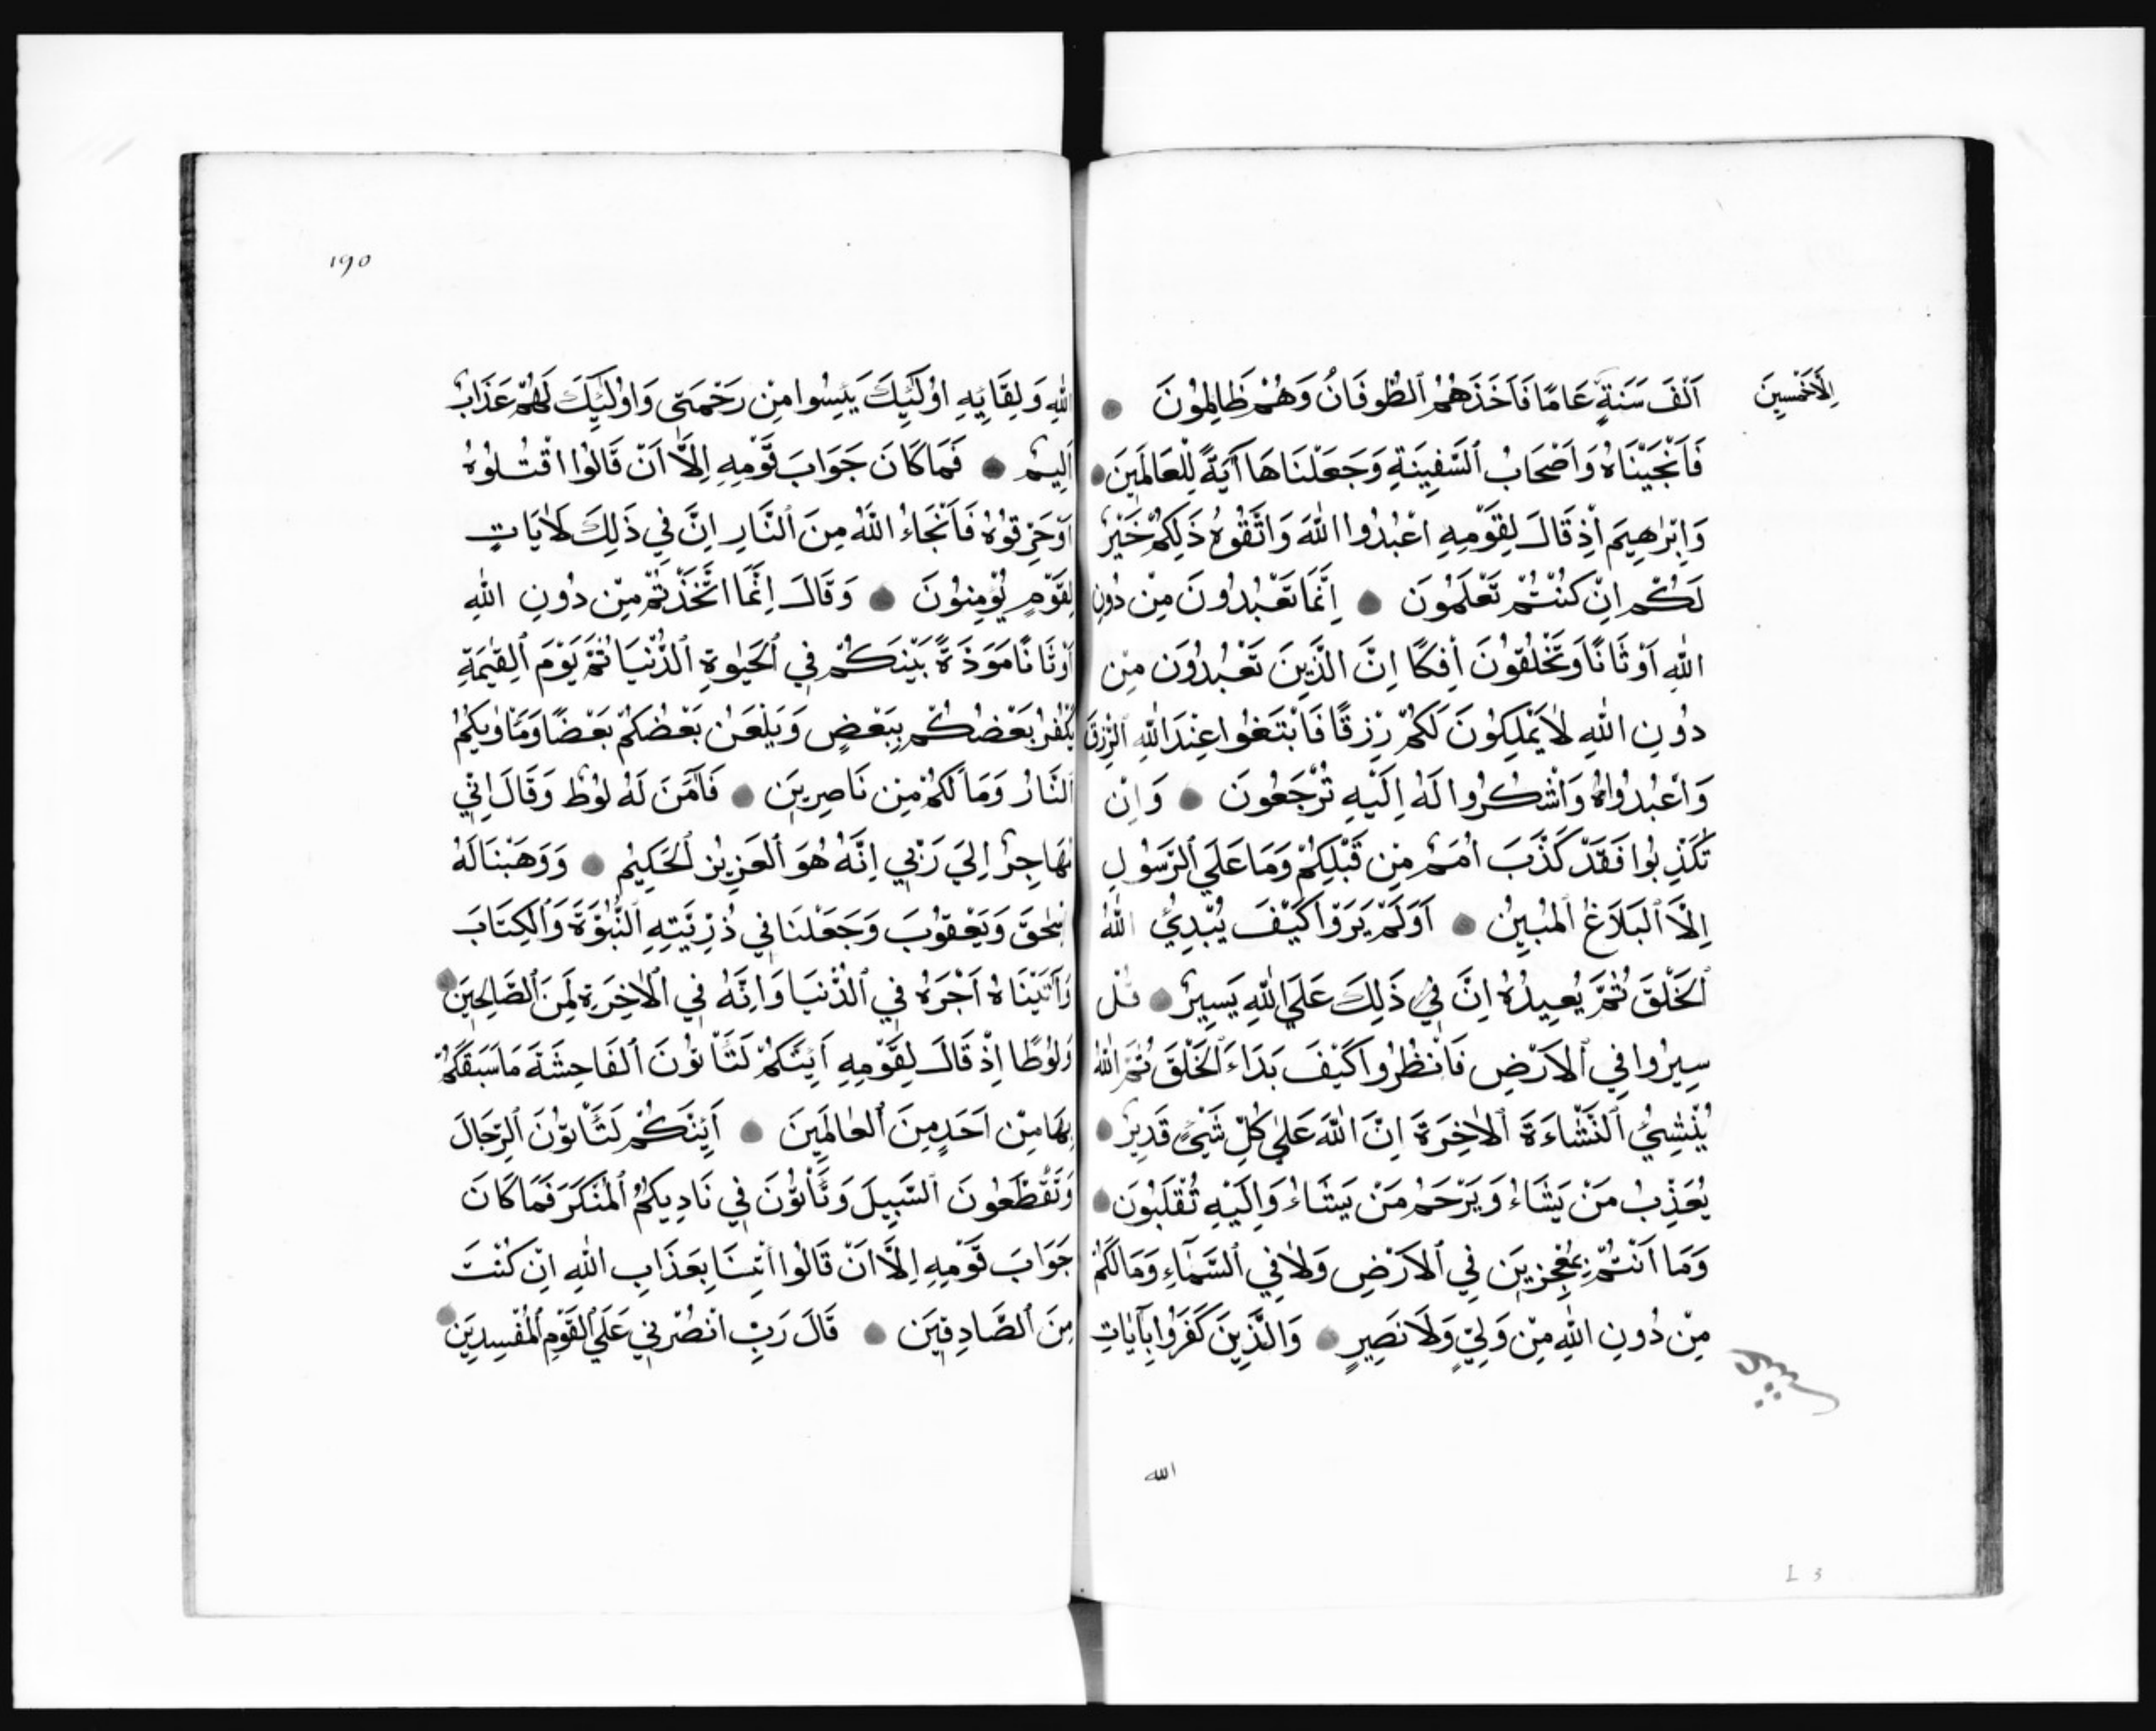 اِلَّا خَمْسِينَ
اَلْفَ سَنَةٍ عَامًا فَاَخَذَهُمُ ٱلطُّوفَانُ وَهُمْ ظَالِمُونَ
فَاَنْجَيْنَاهُ وَاَصْحَابُ ٱلسَّفِينَةِ وَجَعَلْنَاهَا آيَةً لِلْعَالَمِينَ
وَاِبْرٰهِيمَ اِذْ قَالَ لِقَوْمِهِ اعْبُدُوا اللّٰهَ وَاتَّقُوهُ ذَلِكُمْ خَيْرٌ
لَكُمْ اِنْ كُنْتُمْ تَعْلَمُونَ اِنَّمَا تَعْبُدُونَ مِنْ دُونِ
اللّٰهِ اَوْثَانًا وَتَخْلُقُونَ اِفْكًا اِنَّ الَّذِينَ تَعْبُدُونَ مِنْ
دُونِ اللّٰهِ لَا يَمْلِكُونَ لَكُمْ رِزْقًا فَابْتَغُوا عِنْدَ اللّٰهِ ٱلرِّزْقَ
وَاعْبُدُواهُ وَاشْكُرُوا لَهُ اِلَيْهِ تُرْجَعُونَ وَاِنْ
تُكَذِّبُوا فَقَدْ كَذَّبَ اُمَمٌ مِنْ قَبْلِكُمْ وَمَا عَلَي ٱلرَّسُولِ
اِلَّا ٱلْبَلَاغُ ٱلْمُبِينُ اَوَلَمْ يَرَوْا كَيْفَ يُبْدِئُ اللّٰهُ
ٱلْخَلْقَ ثُمَّ يُعِيدُهُ اِنَّ فِي ذَلِكَ عَلَي اللّٰهِ يَسِيرٌ قُلْ
سِيرُوا فِي ٱلْاَرْضِ فَانْظُرُوا كَيْفَ بَدَاءَ ٱلْخَلْقَ ثُمَّ اللّٰهُ
يُنْشِئُ ٱلنَّشْاَءَةَ ٱلْاٰخِرَةَ اِنَّ اللّٰهَ عَلٰي كُلِّ شَيْءٍ قَدِيرٌ
يُعَذِّبُ مَنْ يَشَاءُ وَيَرْحَمُ مَنْ يَشَاءُ وَاِلَيْهِ تُقْلَبُونَ
وَمَا اَنْتُمْ بِمُعْجِزِينَ فِي ٱلْاَرْضِ وَلَا فِي ٱلسَّمَآءِ وَمَا لَكُمْ
مِنْ دُونِ اللّٰهِ مِنْ وَلِيٍّ وَلَا نَصِيرٍ وَالَّذِينَ كَفَرُوا بِآيَاتِ
الله
L 3
190
اللّٰهِ وَلِقَائِهِ اُولَئِكَ يَئِسُوا مِنْ رَحْمَتِي وَاُولٰئِكَ لَهُمْ عَذَابٌ
اَلِيمٌ فَمَا كَانَ جَوَابَ قَوْمِهِ اِلَّا اَنْ قَالُوا اقْتُلُوهُ
اَوْ حَرِّقُوهُ فَاَنْجَاءُ اللّٰهُ مِنَ ٱلنَّارِ اِنَّ فِي ذَلِكَ لَاٰيَاتٍ
لِقَوْمٍ يُؤْمِنُونَ وَقَالَ اِنَّمَا اتَّخَذْتُمْ مِنْ دُونِ اللّٰهِ
اَوْثَانًا مَوَدَّةً بَيْنَكُمْ فِي ٱلْحَيٰوةِ ٱلدُّنْيَا ثُمَّ يَوْمَ ٱلْقِيٰمَةِ
يَكْفُرُ بَعْضُكُمْ بِبَعْضٍ وَيَلْعَنُ بَعْضُكُمْ بَعْضًا وَمَاْوٰيكُمُ
ٱلنَّارُ وَمَا لَكُمْ مِنْ نَاصِرِينَ فَآمَنَ لَهُ لُوطٌ وَقَالَ اِنِّي
مُهَاجِرٌ اِلَيَ رَبِّي اِنَّهُ هُوَ ٱلْعَزِيزُ ٱلْحَكِيمُ وَوَهَبْنَا لَهُ
اِسْحٰقَ وَيَعْقُوبَ وَجَعَلْنَا فِي ذُرِّيَّتِهِ ٱلنُّبُوَّةَ وَٱلْكِتَابَ
وَآتَيْنَاهُ اَجْرَهُ فِي ٱلدُّنْيَا وَاِنَّهُ فِي ٱلْاٰخِرَةِ لَمِنَ ٱلصَّالِحِينَ
وَلُوطًا اِذْ قَالَ لِقَوْمِهِ اَئِنَّكُمْ لَتَأْتُونَ ٱلْفَاحِشَةَ مَا سَبَقَكُمْ
بِهَا مِنْ اَحَدٍ مِنَ ٱلْعَالَمِينَ اَئِنَّكُمْ لَتَأْتُونَ ٱلرِّجَالَ
وَتَقْطَعُونَ ٱلسَّبِيلَ وَتَأْتُونَ فِي نَادِيكُمُ ٱلْمُنْكَرَ فَمَا كَانَ
جَوَابَ قَوْمِهِ اِلَّا اَنْ قَالُوا ائْتِنَا بِعَذَابِ اللّٰهِ اِنْ كُنْتَ
مِنَ ٱلصَّادِقِينَ قَالَ رَبِّ انْصُرْنِي عَلَي ٱلْقَوْمِ ٱلْمُفْسِدِينَ